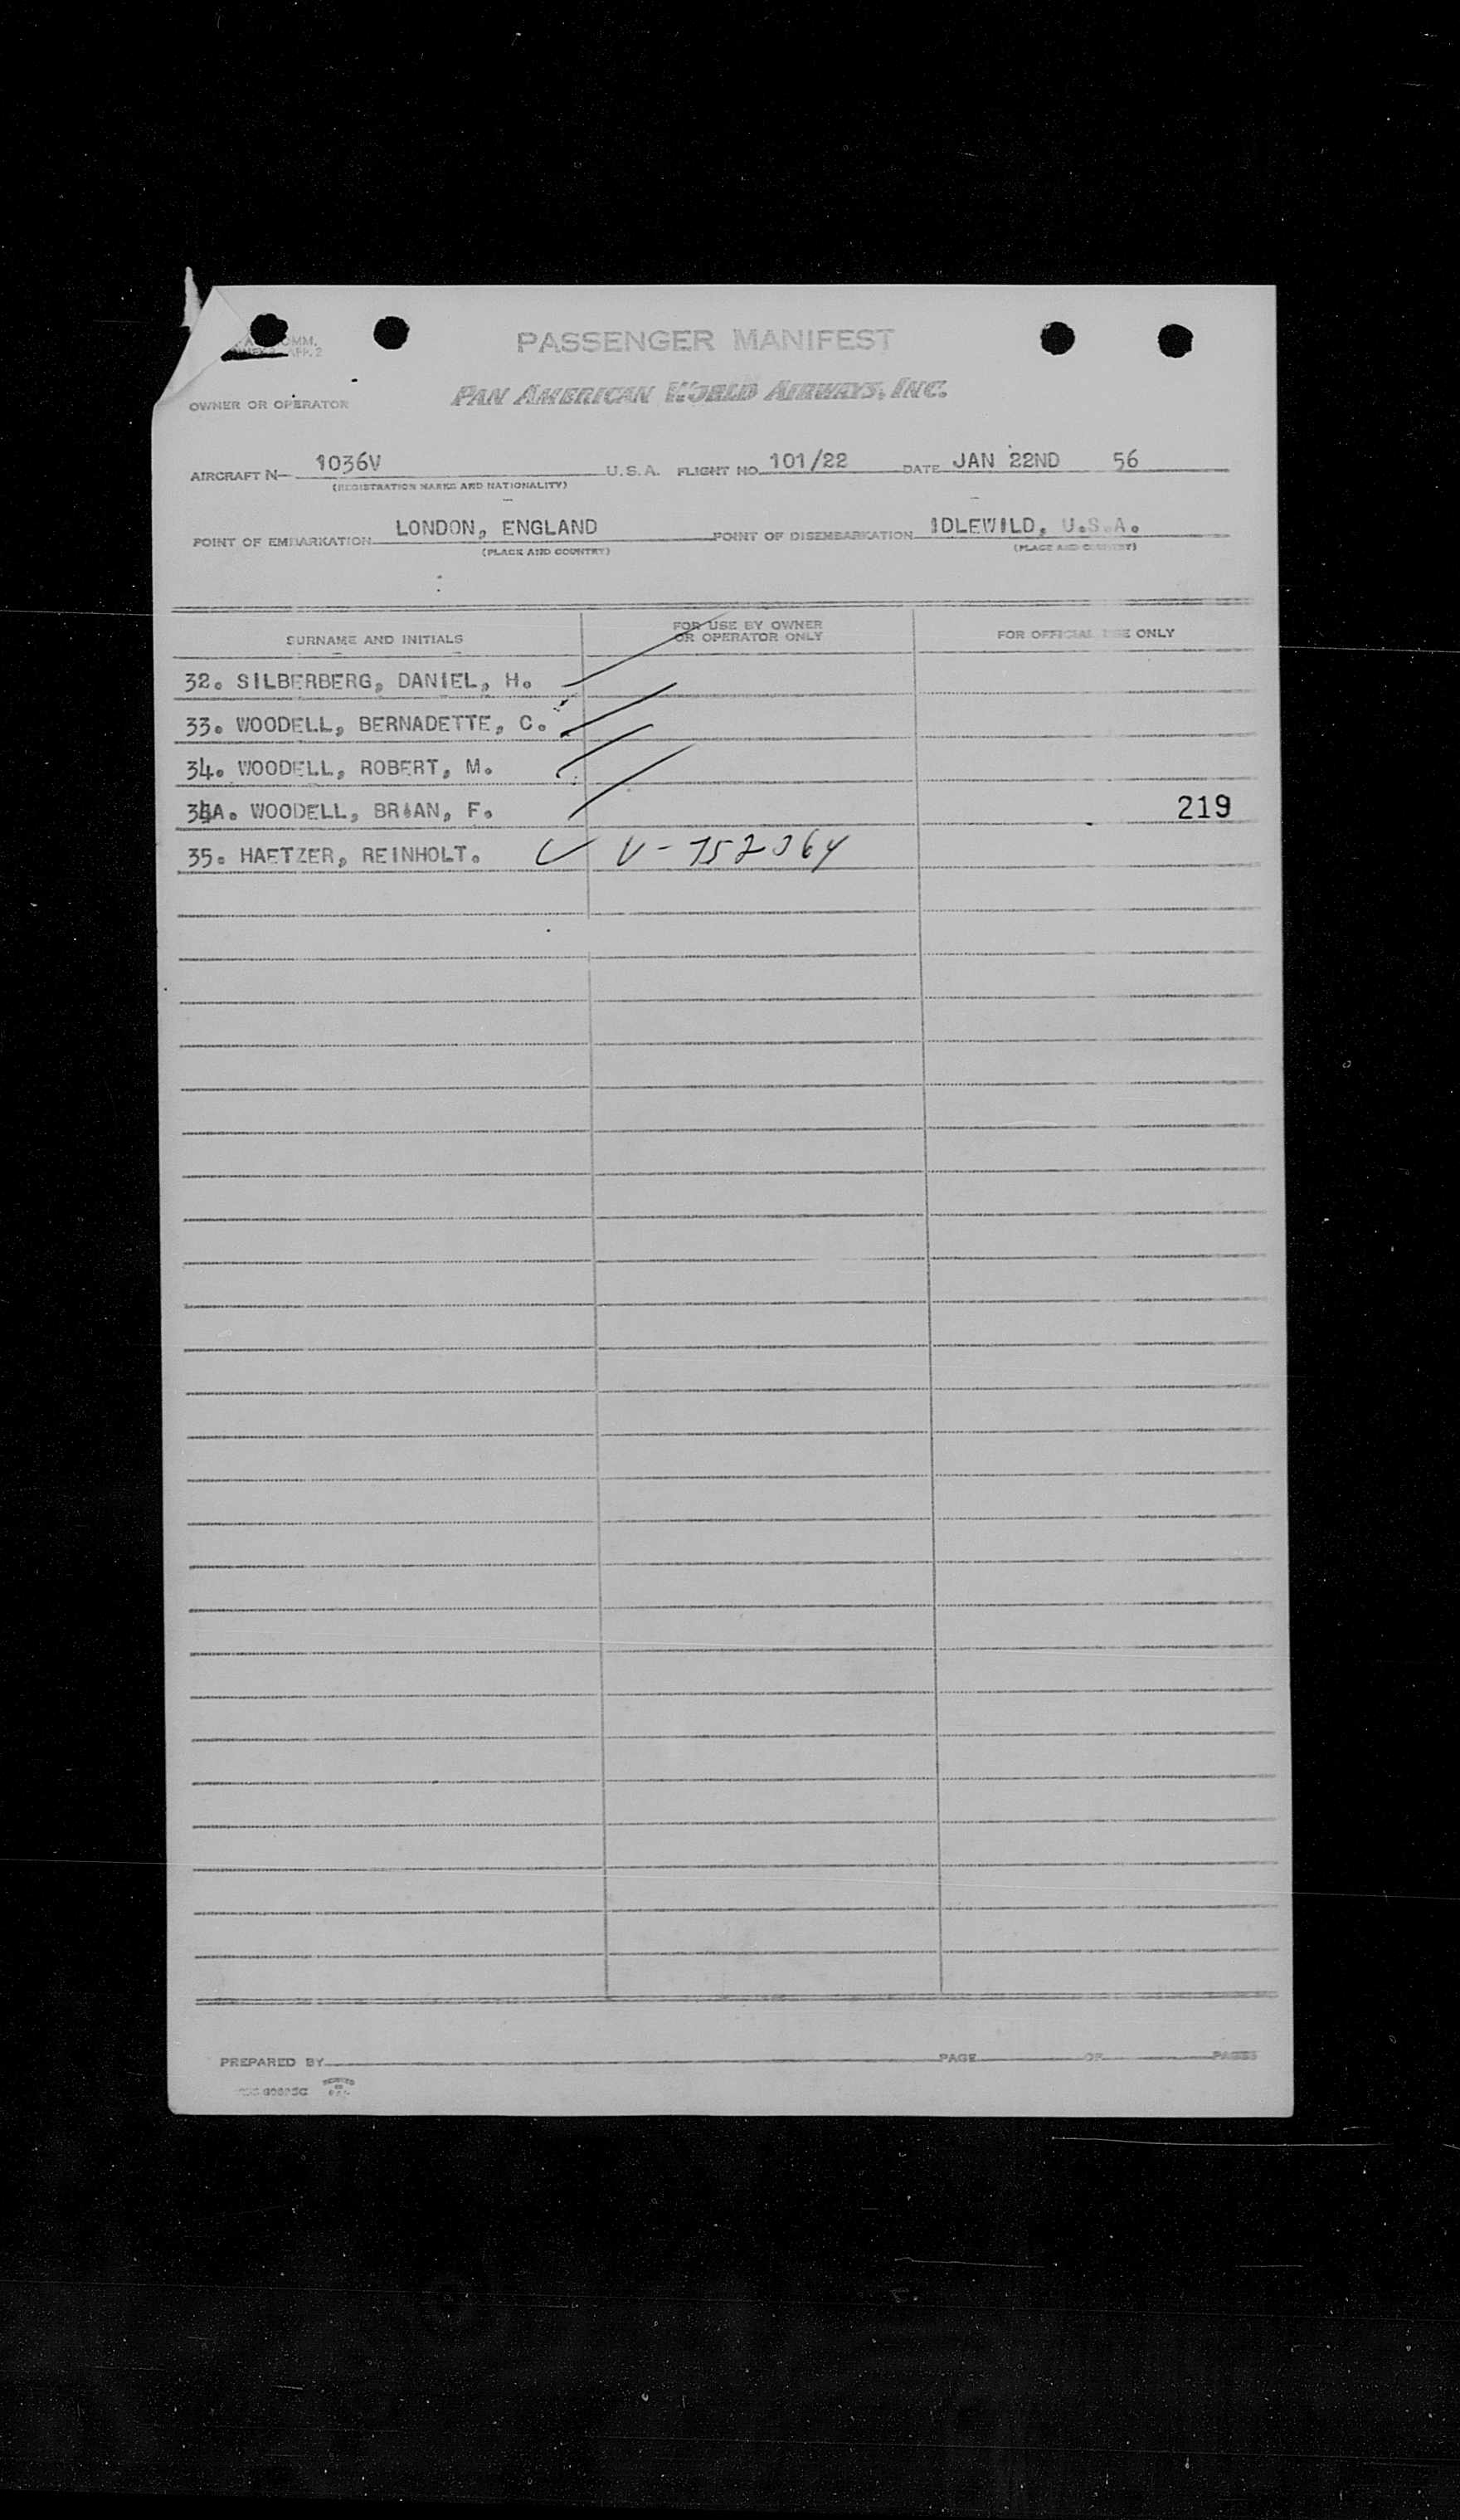 PASSENGER MANIFEST
PAN AMERICAN WORLD AIRWAYS, INC.
OWNER OR OPERATOR
AIRCRAFT N 1036V U.S.A. FLIGHT NO. 101/22 DATE JAN 22ND 56
(REGISTRATION MARKS AND NATIONALITY)
POINT OF EMBARKATION LONDON, ENGLAND POINT OF DISEMBARKATION IDLEWILD, U.S.A.
(PLACE AND COUNTRY) (PLACE AND COUNTRY)
SURNAME AND INITIALS FOR USE BY OWNER OR OPERATOR ONLY FOR OFFICIAL USE ONLY
32. SILBERBERG, DANIEL, H.
33. WOODELL, BERNADETTE, C.
34. WOODELL, ROBERT, M.
34A. WOODELL, BRIAN, F. 219
35. HAETZER, REINHOLT. V-752064
PREPARED BY PAGE OF PAGES